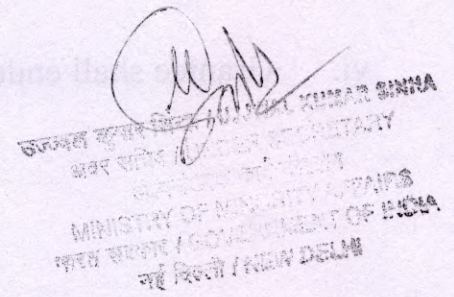 vi. shall end
उज्जवल कुमार सिन्हा / UJJWAL KUMAR SINHA
अवर सचिव / UNDER SECRETARY
MINISTRY OF MINORITY AFFAIRS
भारत सरकार / GOVERNMENT OF INDIA
नई दिल्ली / NEW DELHI